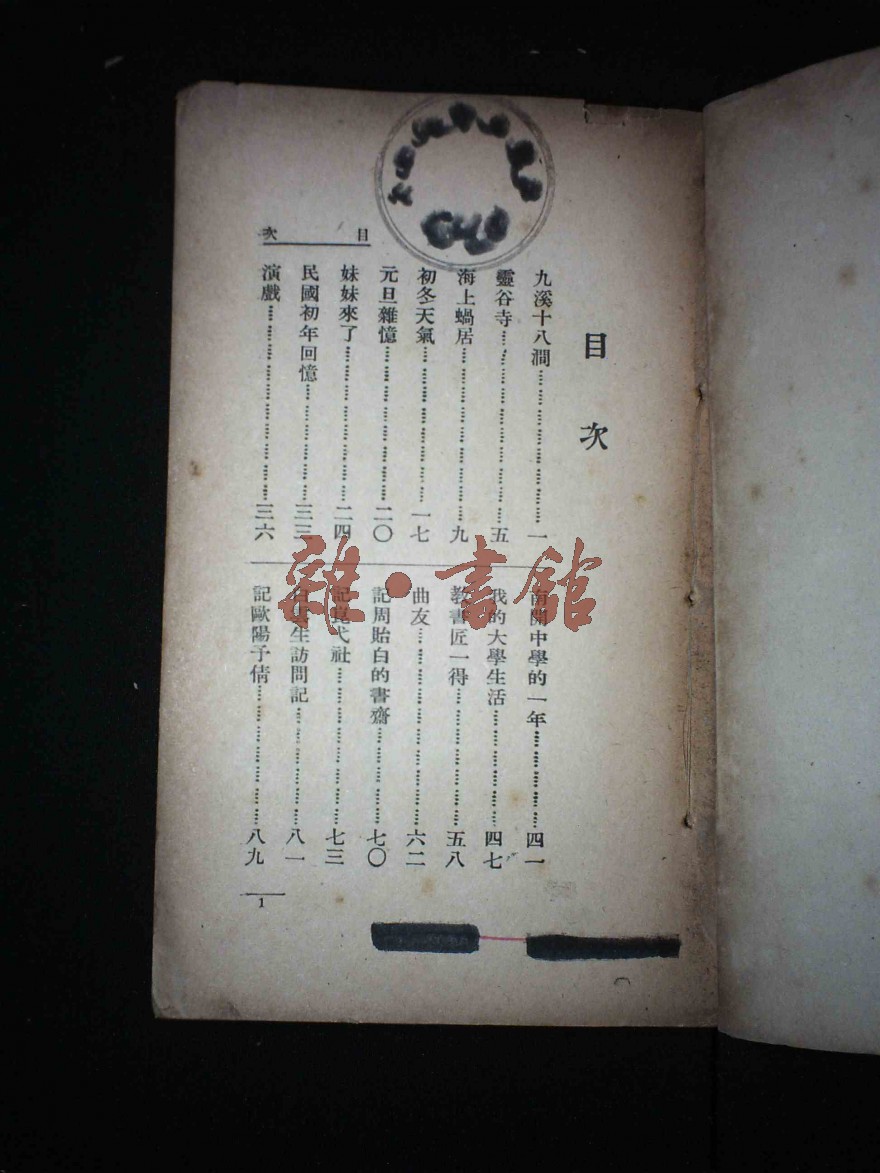 目次
九溪十八澗 一
靈谷寺 五
海上蝸居 九
初冬天氣 一七
元旦雜憶 二〇
妹妹來了 二四
民國初年回憶 三三
演戲 三六
南開中學的一年 四一
我的大學生活 四七
教書匠一得 五八
曲友 六二
記周貽白的書齋 七〇
記崑弋社 七三
白雲生訪問記 八一
記歐陽予倩 八九
目次
1
雜·書館